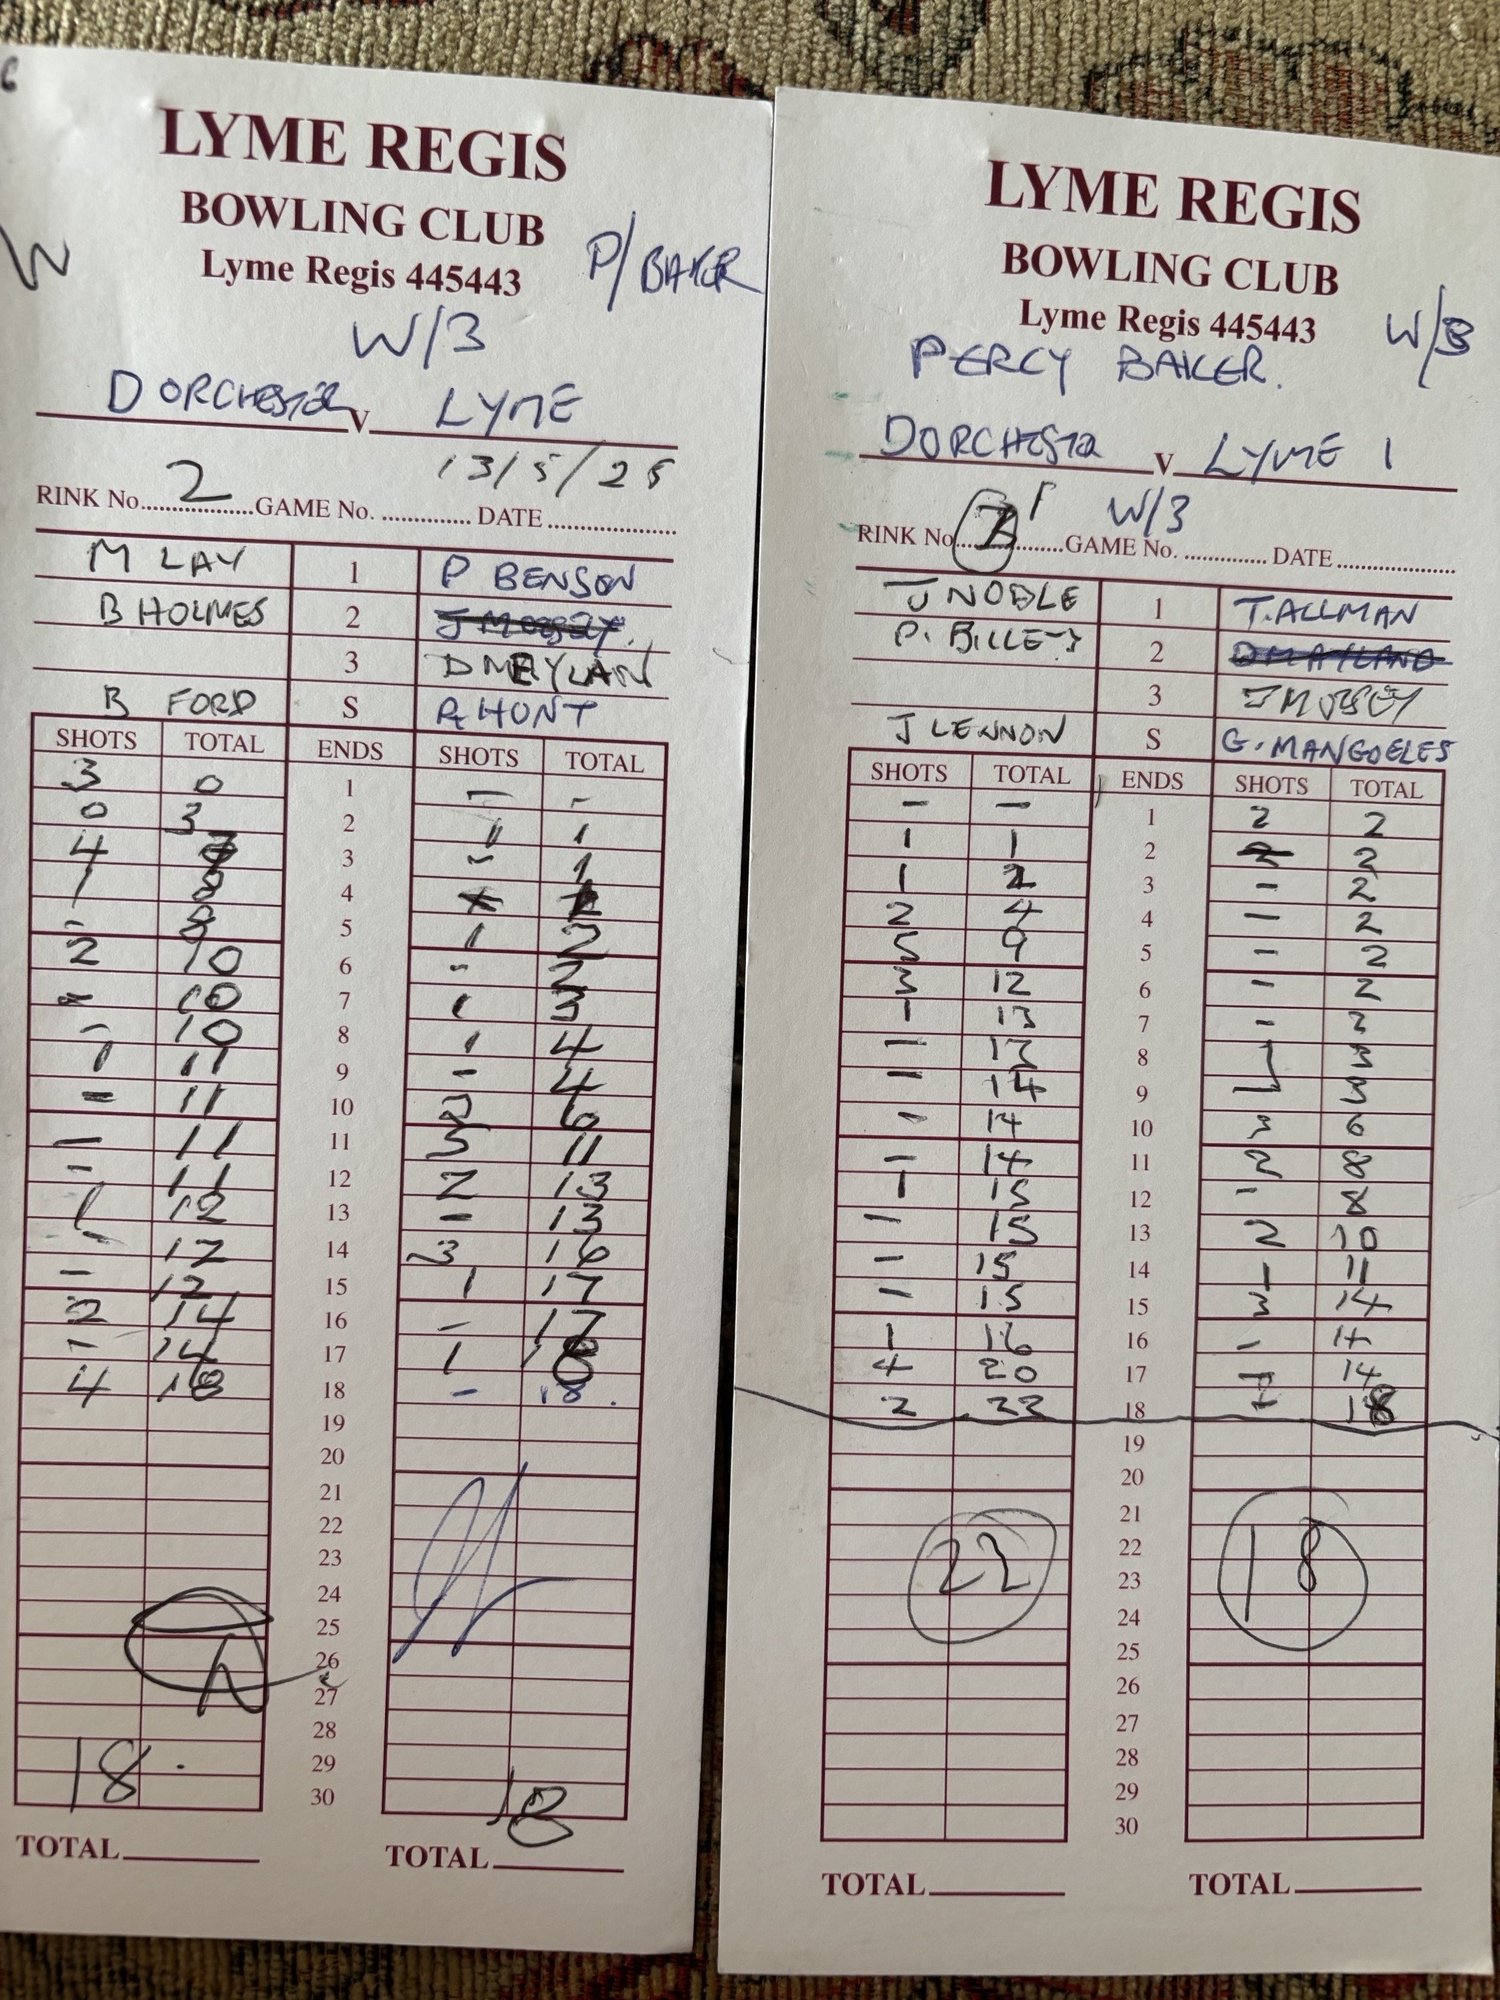 LYME REGIS
BOWLING CLUB
Lyme Regis 445443
P/BAKER
W/3
DORCHESTER V LYME
13/5/25
RINK No. 2 GAME No. DATE
M LAY 1 P BENSON
B HOLMES 2
3 D MEYLAN
B FORD S R HONT
SHOTS TOTAL ENDS SHOTS TOTAL
3 0 1 - -
0 3 2 1 1
4 7 3 - 1
1 8 4
- 8 5 1 2
2 10 6 - 2
- 10 7 1 3
- 10 8 1 4
1 11 9 - 4
- 11 10 2 6
- 11 11 5 11
- 11 12 2 13
1 12 13 - 13
- 12 14 3 16
- 12 15 1 17
2 14 16 - 17
- 14 17 1 18
4 18 18 - 18
19
20
21
22
23
24
25
26
27
28
29
30
18 18
TOTAL TOTAL
LYME REGIS
BOWLING CLUB
Lyme Regis 445443
W/3
PERCY BAKER.
DORCHESTER V LYME 1
W/3
RINK No GAME No. DATE
J NOBLE 1 T. ALLMAN
P. BILLETT 2
3 J MORSEY
J LENNON S G. MANGOELES
SHOTS TOTAL ENDS SHOTS TOTAL
- - 1 2 2
1 1 2 2
1 2 3 - 2
2 4 4 - 2
5 9 5 - 2
3 12 6 - 2
1 13 7 - 2
- 13 8 1 3
- 14 9 3
- 14 10 3 6
- 14 11 2 8
1 15 12 - 8
- 15 13 2 10
- 15 14 1 11
- 15 15 3 14
1 16 16 - 14
4 20 17 - 14
2 22 18 18
19
20
21
22
23
24
25
26
27
28
29
30
22 18
TOTAL TOTAL